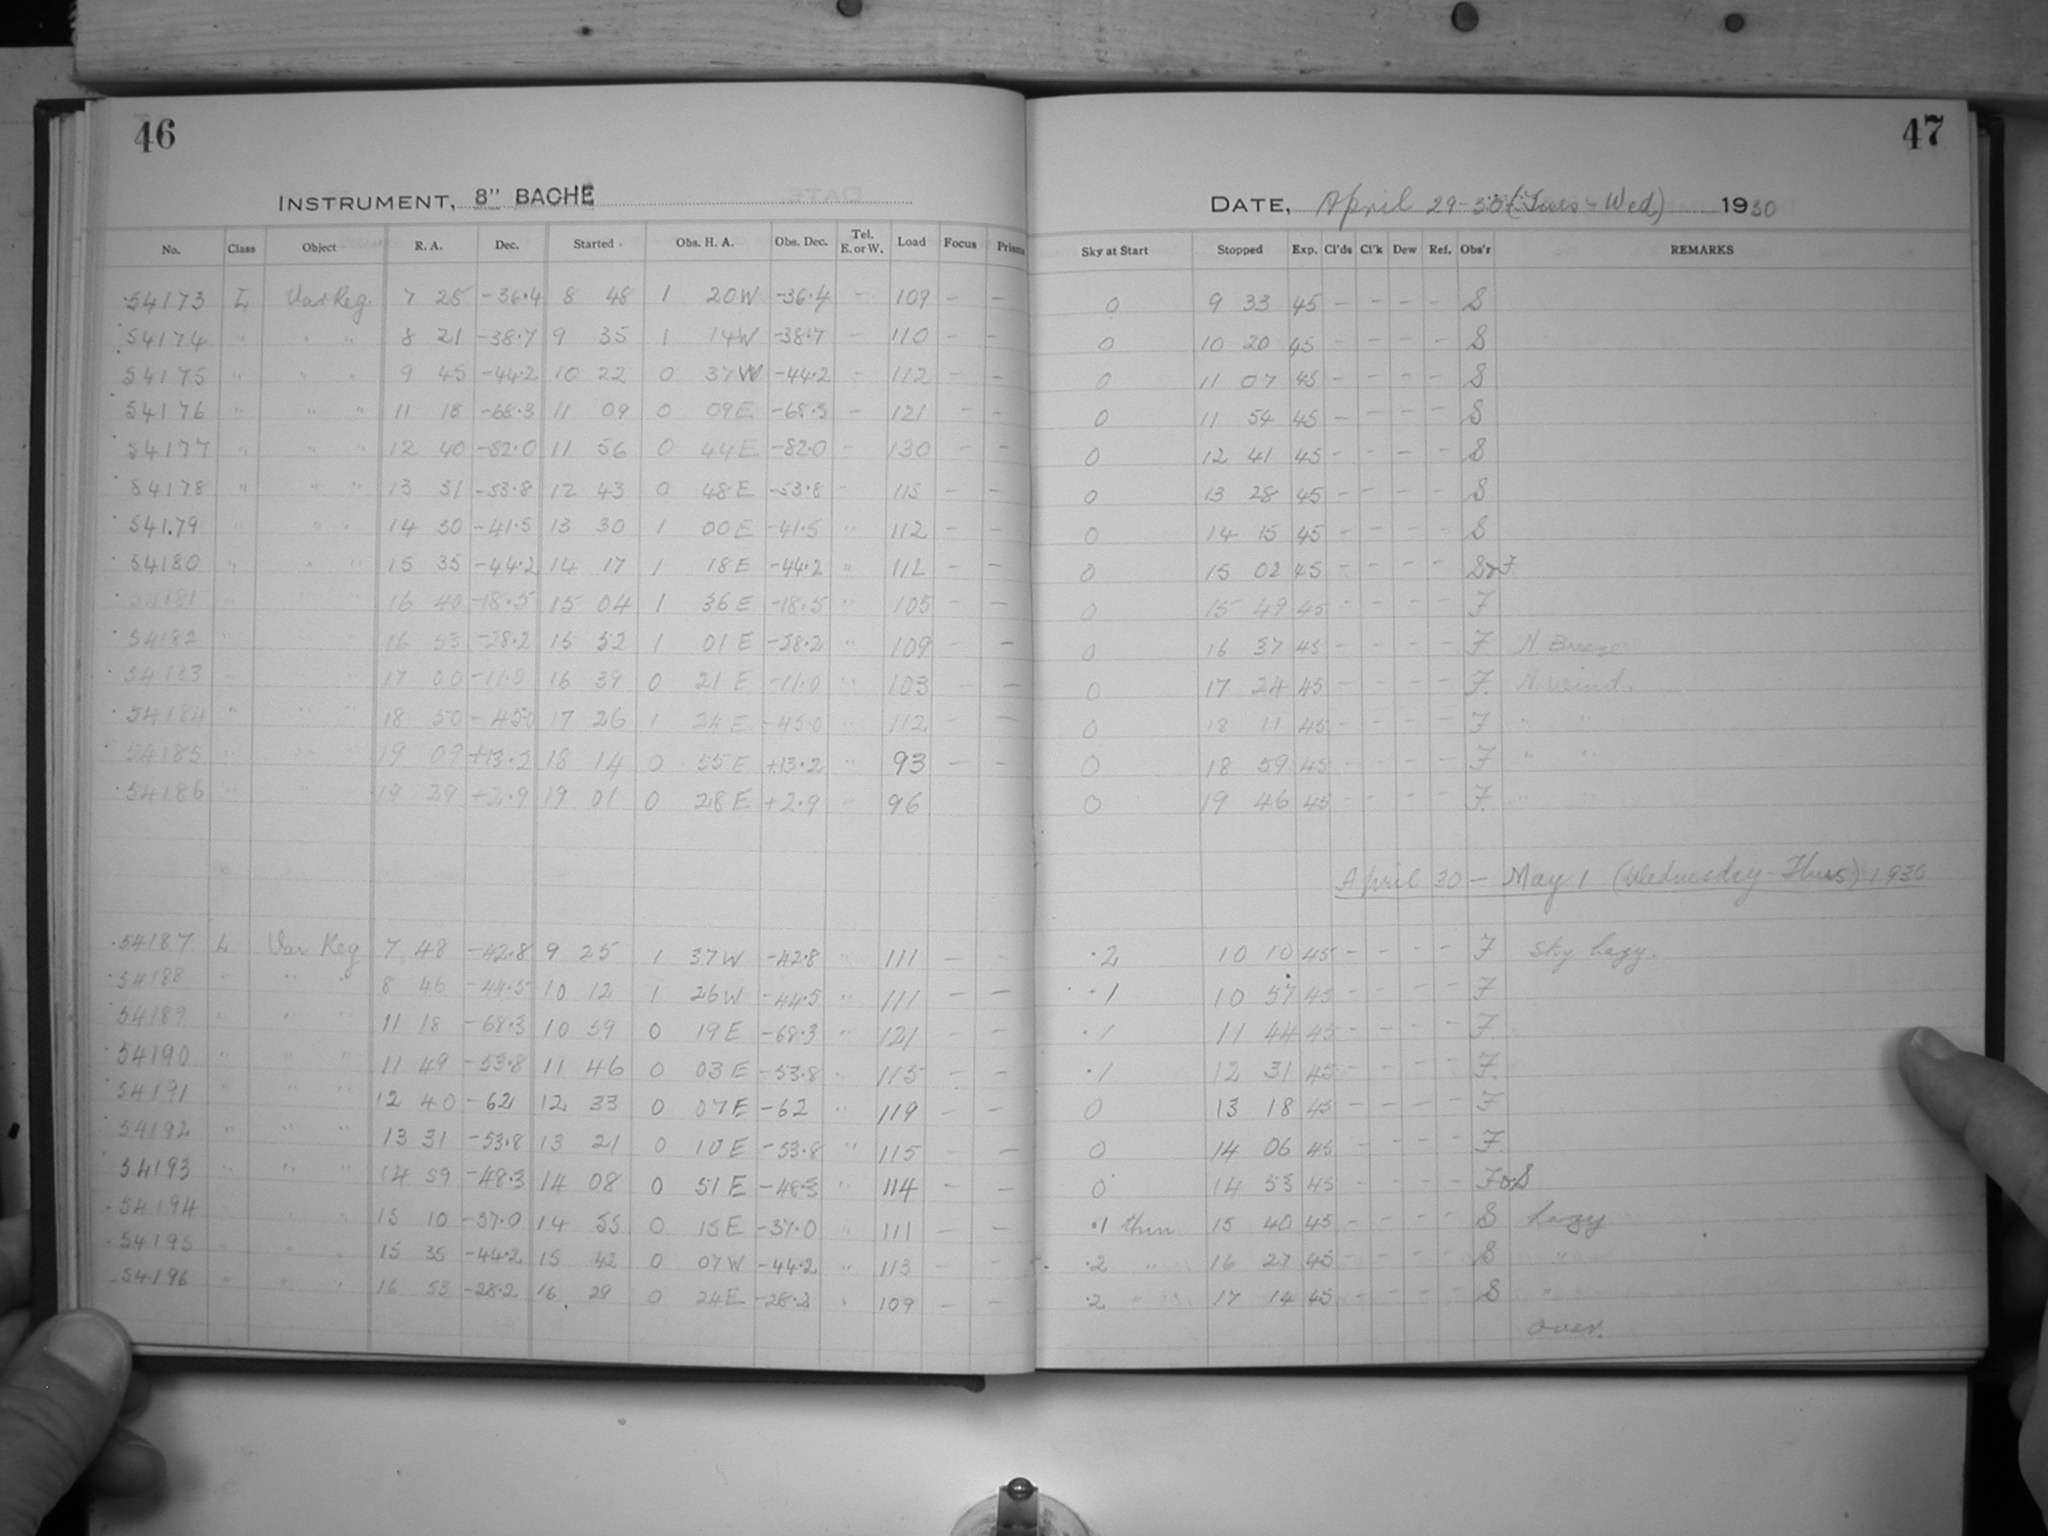 46
47
INSTRUMENT, 8" BACHE
DATE, April 29-30 (Tues - Wed) 1930
No. Class Object R. A. Dec. Started Obs. H. A. Obs. Dec. Tel. E. or W. Load Focus Prisms Sky at Start Stopped Exp. Cl'ds Cl'k Dew Ref. Obs'r REMARKS
54173 L Var Reg. 7 25 -36.4 8 48 1 20W -36.4 - 109 - - 0 9 33 45 - - - - S
54174 " " " 8 21 -38.7 9 35 1 14W -38.7 - 110 - - 0 10 20 45 - - - - S
54175 " " " 9 45 -44.2 10 22 0 37W -44.2 - 112 - - 0 11 07 45 - - - - S
54176 " " " 11 18 -68.3 11 09 0 09E -68.3 - 121 - - 0 11 54 45 - - - - S
54177 " " " 12 40 -82.0 11 56 0 44E -82.0 - 130 - - 0 12 41 45 - - - - S
54178 " " " 13 31 -53.8 12 43 0 48E -53.8 - 115 - - 0 13 28 45 - - - - S
54179 " " " 14 30 -41.5 13 30 1 00E -41.5 " 112 - - 0 14 15 45 - - - - S
54180 " " " 15 35 -44.2 14 17 1 18E -44.2 " 112 - - 0 15 02 45 - - - - S&F
54181 " " " 16 40 -18.5 15 04 1 36E -18.5 " 105 - - 0 15 49 45 - - - - F
54182 " " " 16 53 -28.2 15 52 1 01E -28.2 " 109 - - 0 16 37 45 - - - - F N Breeze
54183 " " " 17 00 -11.0 16 39 0 21E -11.0 " 103 - - 0 17 24 45 - - - - F. N wind.
54184 " " " 18 50 -45.0 17 26 1 24E -45.0 " 112 - - 0 18 11 45 - - - - F " "
54185 " " " 19 09 +13.2 18 14 0 55E +13.2 " 93 - - 0 18 59 45 - - - - F " "
54186 " " " 19 29 +2.9 19 01 0 28E +2.9 " 96 0 19 46 45 - - - - F. " "
April 30 - May 1 (Wednesday-Thurs) 1930
54187 L Var Reg 7 48 -42.8 9 25 1 37W -42.8 " 111 - - .2 10 10 45 - - - - F Sky hazy.
54188 " " " 8 46 -44.5 10 12 1 26W -44.5 " 111 - - .1 10 57 45 - - - - F
54189 " " " 11 18 -68.3 10 59 0 19E -68.3 " 121 - - .1 11 44 45 - - - - F.
54190 " " " 11 49 -53.8 11 46 0 03E -53.8 " 115 - - .1 12 31 45 - - - - F.
54191 " " " 12 40 -62 12 33 0 07E -62 " 119 - - 0 13 18 45 - - - - F
54192 " " " 13 31 -53.8 13 21 0 10E -53.8 " 115 - - 0 14 06 45 - - - - F.
54193 " " " 14 59 -48.3 14 08 0 51E -48.3 " 114 - - 0 14 53 45 - - - - F&S
54194 " " 15 10 -37.0 14 55 0 15E -37.0 " 111 - - .1 thin 15 40 45 - - - - S hazy
54195 " " " 15 35 -44.2 15 42 0 07W -44.2 " 113 - - .2 " 16 27 45 - - - - S "
54196 " " " 16 53 -28.2 16 29 0 24E -28.2 " 109 - - .2 " 17 14 45 - - - - S "
over.